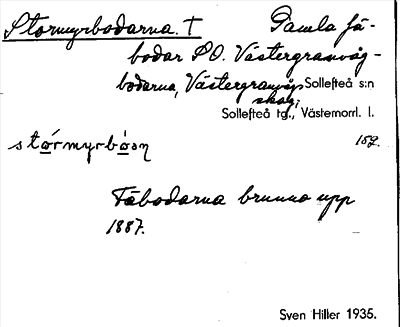 Stormyrbodarna. † Gamla fä-
bodar SO. Västergranvåg-
bodarna, Västergranvåg
skog; Sollefteå s:n
Sollefteå tg., Västernorrl. l.
stórmyrbòan 159.
Fäbodarna brunno upp
1887.
Sven Hiller 1935.